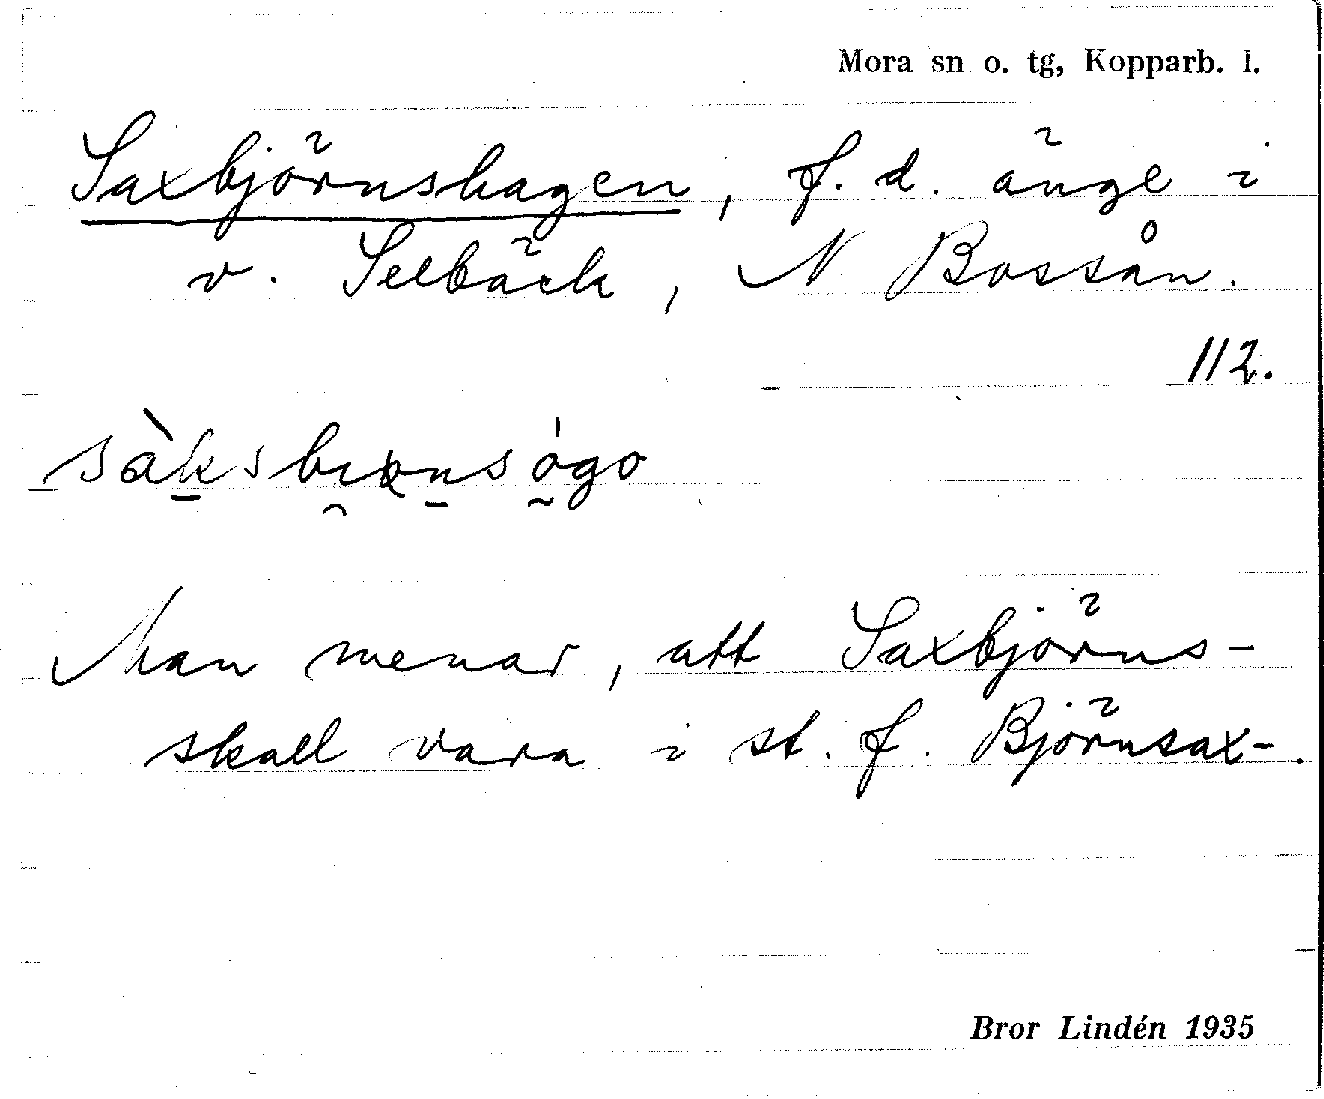 Mora sn o. tg, Kopparb. l.
Saxbjörnshagen, f. d. änge i
v. Selbäck, N Bossån.
112.
sàksbiȯnsógo
Man menar, att Saxbjörns-
skall vara i st. f. Björnsax-.
Bror Lindén 1935